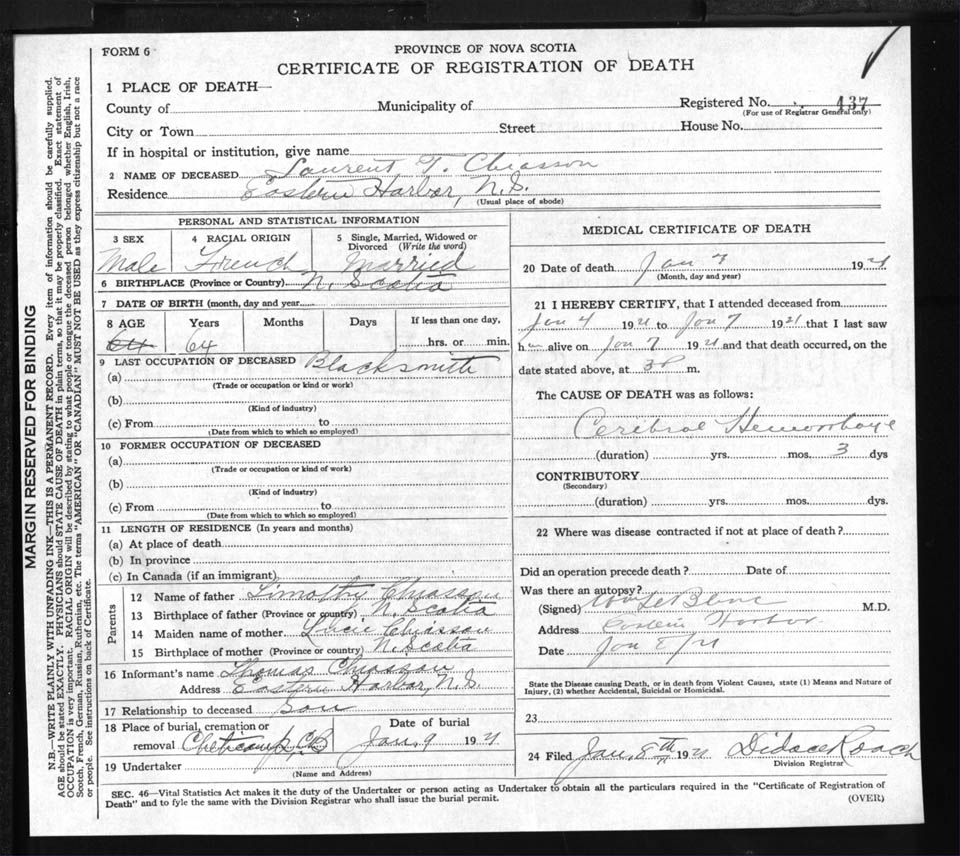 FORM 6
PROVINCE OF NOVA SCOTIA
CERTIFICATE OF REGISTRATION OF DEATH
1 PLACE OF DEATH—
County of Municipality of Registered No. 437
(For use of Registrar General only)
City or Town Street House No.
If in hospital or institution, give name
2 NAME OF DECEASED Laurent T. Chiasson
Residence Eastern Harbor, N.S.
(Usual place of abode)
PERSONAL AND STATISTICAL INFORMATION
3 SEX 4 RACIAL ORIGIN 5 Single, Married, Widowed or Divorced (Write the word)
Male French Married
6 BIRTHPLACE (Province or Country) N. Scotia
7 DATE OF BIRTH (month, day and year)
8 AGE Years Months Days If less than one day,
64 64 hrs. or min.
9 LAST OCCUPATION OF DECEASED Blacksmith
(a)
(Trade or occupation or kind of work)
(b)
(Kind of industry)
(c) From to
(Date from which to which so employed)
10 FORMER OCCUPATION OF DECEASED
(a)
(Trade or occupation or kind of work)
(b)
(Kind of industry)
(c) From to
(Date from which to which so employed)
11 LENGTH OF RESIDENCE (In years and months)
(a) At place of death
(b) In province
(c) In Canada (if an immigrant)
Parents
12 Name of father Timothy Chiasson
13 Birthplace of father (Province or country) N. Scotia
14 Maiden name of mother Lucie Chiasson
15 Birthplace of mother (Province or country) N. Scotia
16 Informant's name Thomas Chiasson
Address Eastern Harbor, N.S.
17 Relationship to deceased Son
18 Place of burial, cremation or removal Cheticamp, CB
Date of burial
Jan. 9 1921
19 Undertaker
(Name and Address)
MEDICAL CERTIFICATE OF DEATH
20 Date of death Jan 7 1921
(Month, day and year)
21 I HEREBY CERTIFY, that I attended deceased from
Jan 4 1921 to Jan 7 1921 that I last saw
him alive on Jan 7 1921 and that death occurred, on the
date stated above, at 3 P m.
The CAUSE OF DEATH was as follows:
Cerebral Hemorrhage
(duration) yrs. mos. 3 dys
CONTRIBUTORY
(Secondary)
(duration) yrs. mos. dys.
22 Where was disease contracted if not at place of death?
Did an operation precede death? Date of
Was there an autopsy?
(Signed) LeBlanc M.D.
Address Eastern Harbor
Date Jan 8/21
State the Disease causing Death, or in death from Violent Causes, state (1) Means and Nature of
Injury, (2) whether Accidental, Suicidal or Homicidal.
23
24 Filed Jan. 8th 1921 Didace Roach
Division Registrar
SEC. 46—Vital Statistics Act makes it the duty of the Undertaker or person acting as Undertaker to obtain all the particulars required in the "Certificate of Registration of
Death" and to fyle the same with the Division Registrar who shall issue the burial permit.
(OVER)
MARGIN RESERVED FOR BINDING
N.B.—WRITE PLAINLY WITH UNFADING INK—THIS IS A PERMANENT RECORD. Every item of information should be carefully supplied.
AGE should be stated EXACTLY. PHYSICIANS should STATE CAUSE OF DEATH in plain terms, so that it may be properly classified. Exact statement of
OCCUPATION is very important. RACIAL ORIGIN will be described by stating to what people or tongue the deceased person belonged whether English, Irish,
Scotch, French, German, Russian, Ruthenian, etc. The terms "AMERICAN" OR "CANADIAN" MUST NOT BE USED as they express citizenship but not a race
or people. See instructions on back of Certificate.